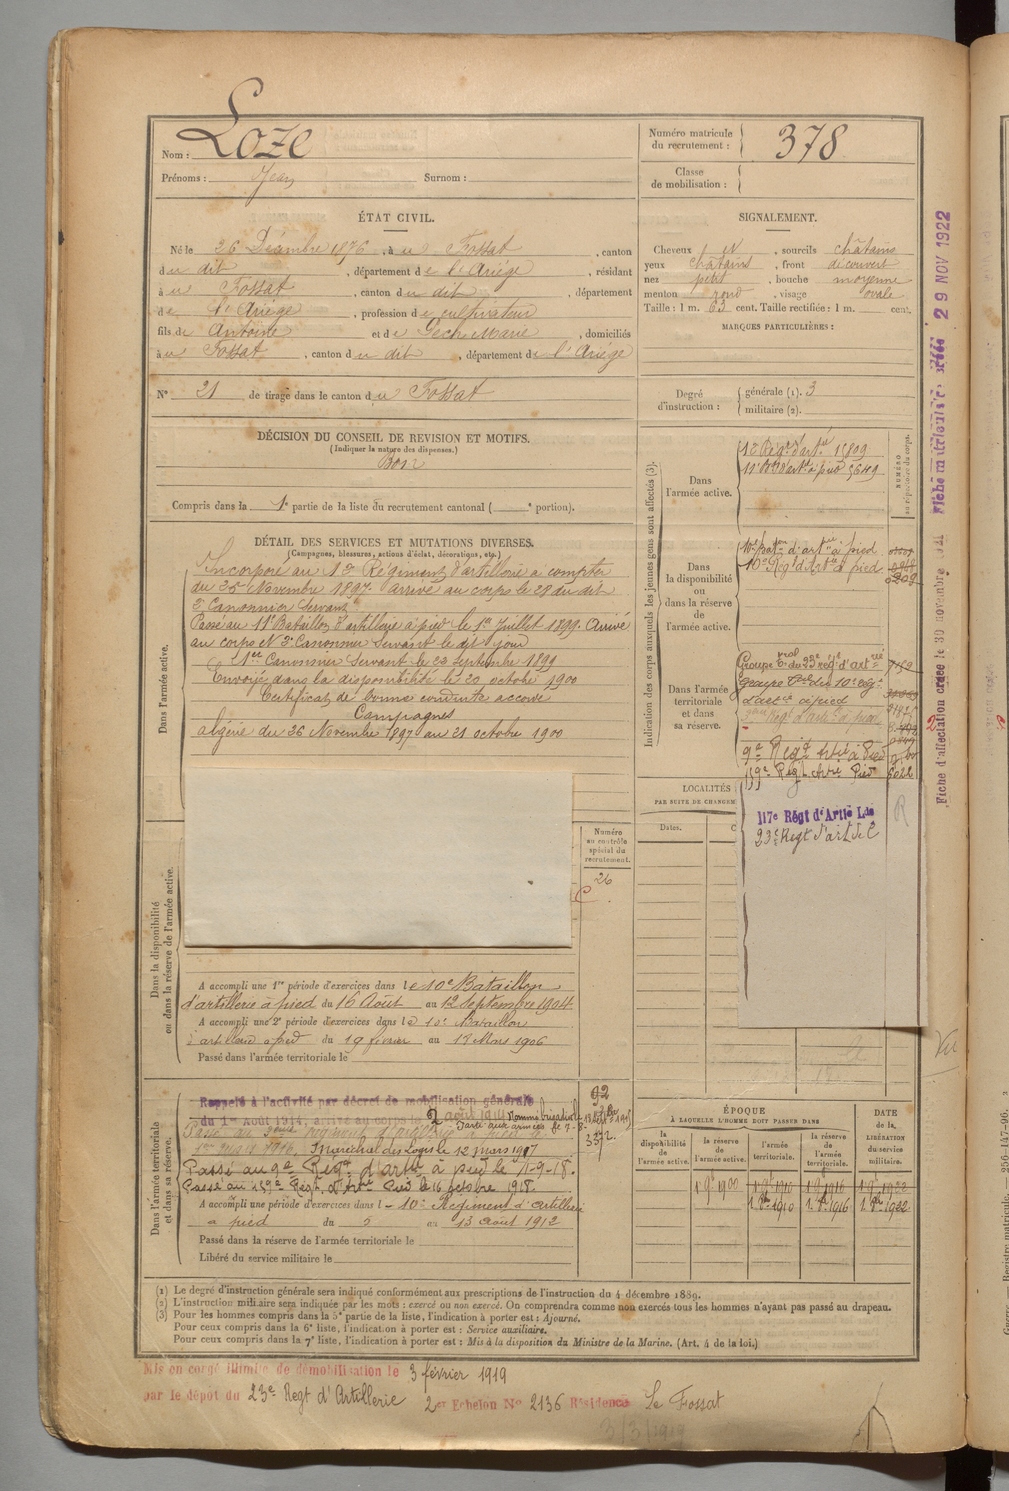 Nom : Loze
Prénoms : Jean Surnom :
Numéro matricule du recrutement : 378
Classe de mobilisation :
ÉTAT CIVIL.
Né le 26 Décembre 1876, à u Fossat, canton
du dit, département de l'Ariège, résidant
à u Fossat, canton du dit, département
de l'Ariège, profession de cultivateur
fils de Antoine et de Marie, domiciliés
à u Fossat, canton du dit, département de l'Ariège
N° 21 de tirage dans le canton du Fossat
SIGNALEMENT.
Cheveux sourcils châtains
yeux châtains, front découvert
nez petit, bouche moyenne
menton rond, visage ovale
Taille : 1 m. 63 cent. Taille rectifiée : 1 m. cent.
MARQUES PARTICULIÈRES :
Degré d'instruction : générale (1). 3
militaire (2).
DÉCISION DU CONSEIL DE REVISION ET MOTIFS.
(Indiquer la nature des dispenses.)
Bon
Compris dans la 1e partie de la liste du recrutement cantonal ( e portion).
DÉTAIL DES SERVICES ET MUTATIONS DIVERSES.
(Campagnes, blessures, actions d'éclat, décorations, etc.)
Dans l'armée active.
Incorporé au 12e Régiment d'artillerie à compter
du 25 Novembre 1897. Arrivé au corps le 28 du dit
2e Canonnier Servant
Passé au 11e Bataillon d'artillerie à pied le 1er Juillet 1899. Arrivé
au corps et 2e Canonnier Servant le dit jour
1er Canonnier Servant le 23 Septembre 1899
Envoyé dans la disponibilité le 20 octobre 1900
Certificat de bonne conduite accordé
Campagnes
Algérie du 26 Novembre 1897 au 21 octobre 1900
Indication des corps auxquels les jeunes gens sont affectés (3).
NUMÉRO au répertoire du corps.
Dans l'armée active.
12e Régt d'artie 15809
11e Bon d'artie à pied 5649
Dans la disponibilité ou dans la réserve de l'armée active.
10e baton d'artie à pied
10e Régt d'Artie à pied
Dans l'armée territoriale et dans sa réserve.
Groupe tal du 23e rég. d'artie
Groupe du 10e rég.
d'artie à pied
9e Régt Artie à Pied
159e Régt Artie Pied
117e Régt d'Artie Lde
23e Régt d'art de C
R
LOCALITÉS
PAR SUITE DE CHANGEM
Dates.
Dans la disponibilité ou dans la réserve de l'armée active.
Numéro au contrôle spécial du recrutement.
26
C
A accompli une 1re période d'exercices dans le 10e Bataillon
d'artillerie à pied du 16 Août au 12 Septembre 1904
A accompli une 2e période d'exercices dans le 10e Bataillon
d'artillerie à pied du 19 février au 17 Mars 1906
Passé dans l'armée territoriale le
Dans l'armée territoriale et dans sa réserve.
Rappelé à l'activité par décret de mobilisation générale
du 1er Août 1914, arrivé au corps le 2 août 1914
Maréchal des Logis le 12 mars 1917
Passé au 9e Régt d'artie à pied le 1-9-18.
Passé au 159e Régt d'Artie Pied le 16 octobre 1918
A accompli une période d'exercices dans l 10e Régiment d'artillerie
à pied du 5 au 13 août 1912
Passé dans la réserve de l'armée territoriale le
Libéré du service militaire le
92
ÉPOQUE
À LAQUELLE L'HOMME DOIT PASSER DANS
la disponibilité de l'armée active.
la réserve de l'armée active.
l'armée territoriale.
la réserve de l'armée territoriale.
DATE de la LIBÉRATION du service militaire.
1 9bre 1900 1 9bre 1910 1 9bre 1916 1 9bre 1922
1 8bre 1910 1 8bre 1916 1 8bre 1922
(1) Le degré d'instruction générale sera indiqué conformément aux prescriptions de l'instruction du 4 décembre 1889.
(2) L'instruction militaire sera indiquée par les mots : exercé ou non exercé. On comprendra comme non exercés tous les hommes n'ayant pas passé au drapeau.
(3) Pour les hommes compris dans la 5e partie de la liste, l'indication à porter est : Ajourné.
Pour ceux compris dans la 6e liste, l'indication à porter est : Service auxiliaire.
Pour ceux compris dans la 7e liste, l'indication à porter est : Mis à la disposition du Ministre de la Marine. (Art. 4 de la loi.)
Mis en congé illimité de démobilisation le 3 février 1919
par le dépôt du 23e Régt d'Artillerie 2er Echelon No 2136 Résidence Le Fossat
3/3/1919
Fiche d'affectation créée le 30 novembre
29 NOV 1922
Vu